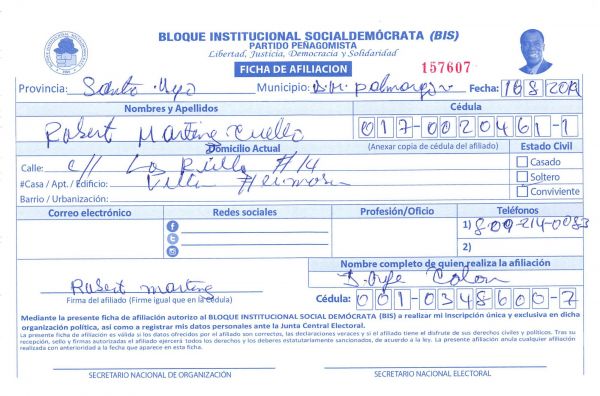 BLOQUE INSTITUCIONAL SOCIALDEMÓCRATA (BIS)
PARTIDO PEÑAGOMISTA
Libertad, Justicia, Democracia y Solidaridad
FICHA DE AFILIACION 157607
Provincia: Santo Municipio: D.M. Fecha: 16 8 2019
Nombres y Apellidos Cédula
Robert Martinez Cuello 017-0020461-1
Domicilio Actual (Anexar copia de cédula del afiliado) Estado Civil
Calle: C// La #14 Casado
#Casa / Apt. / Edificio: Villa Hermosa Soltero
Barrio / Urbanización: Conviviente
Correo electrónico Redes sociales Profesión/Oficio Teléfonos
1) 809-214-0083
2)
Nombre completo de quien realiza la afiliación
Robert Martinez Colon
Firma del afiliado (Firme igual que en la cédula) Cédula: 001-0348600-7
Mediante la presente ficha de afiliación autorizo al BLOQUE INSTITUCIONAL SOCIAL DEMÓCRATA (BIS) a realizar mi inscripción única y exclusiva en dicha
organización política, así como a registrar mis datos personales ante la Junta Central Electoral.
La presente ficha de afiliación es válida si los datos ofrecidos por el afiliado son correctos, las declaraciones veraces y si el afiliado tiene el disfrute de sus derechos civiles y políticos. Tras su
recepción, sello y firmas autorizadas el afiliado ejercerá todos los derechos y los deberes estatutariamente sancionados, de acuerdo a la ley. La presente afiliación anula cualquier afiliación
realizada con anterioridad a la fecha que aparece en esta ficha.
SECRETARIO NACIONAL DE ORGANIZACIÓN SECRETARIO NACIONAL ELECTORAL